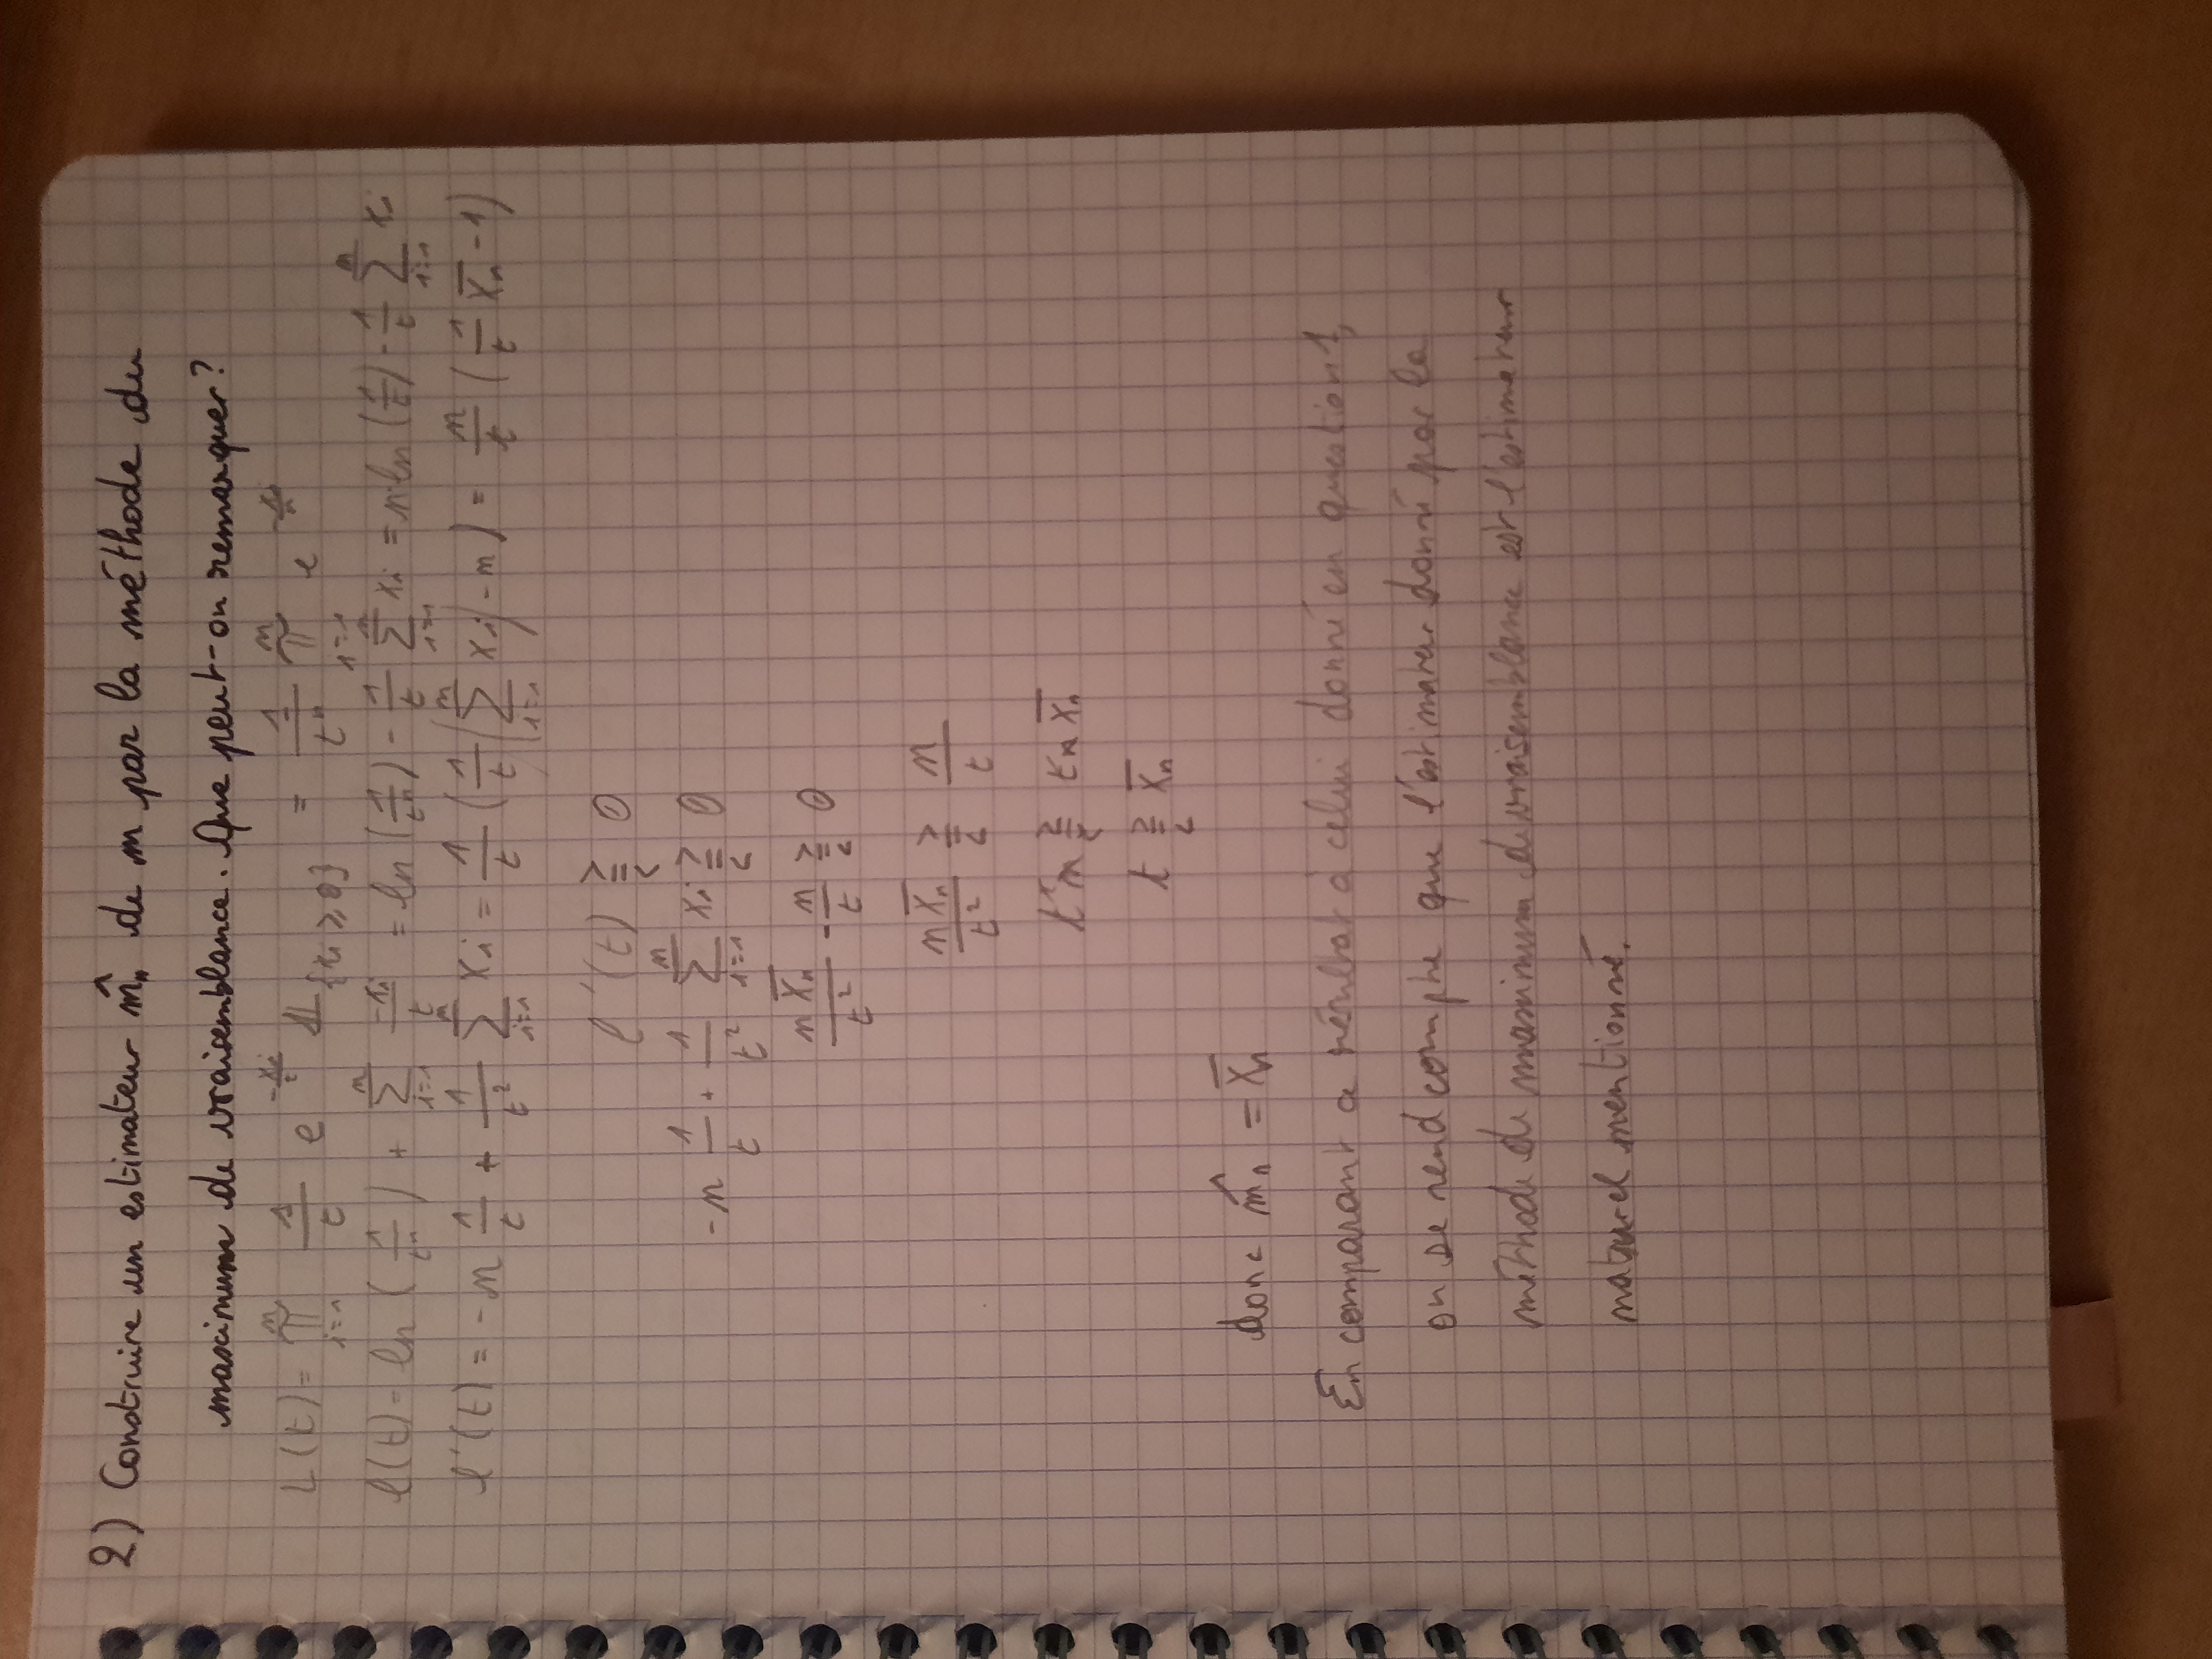 2) Construire un estimateur m̂ₙ de m par la méthode du
maximum de vraisemblance. Que peut-on remarquer ?
L(t) = ∏_{i=1}^{n} 1/t e^{-xi/t} 𝟙_{xi ≥ 0} = 1/tⁿ ∏_{i=1}^{n} e^{-xi/n}
l(t) = ln(1/tⁿ) + ∑_{i=1}^{n} -xi/t = ln(1/tⁿ) - 1/t ∑_{i=1}^{n} xi = n·ln(1/t) - 1/t ∑_{i=1}^{n} xi
l'(t) = -n 1/t + 1/t² ∑_{i=1}^{n} Xi = 1/t (1/t (∑_{i=1}^{n} Xi) - n) = n/t (1/t X̄ₙ - 1)
l'(t) ⋛ 0
-n 1/t + 1/t² ∑_{i=1}^{n} Xi ⋛ 0
n X̄ₙ/t² - n/t ⋛ 0
n X̄ₙ/t² ⋛ n/t
t²n ⋛ tn X̄ₙ
t ⋛ X̄ₙ
donc m̂ₙ = X̄ₙ
En comparant ce résultat à celui donné en question 1,
on se rend compte que l'estimateur donné par la
méthode de maximum de vraisemblance est l'estimateur
naturel mentionné.